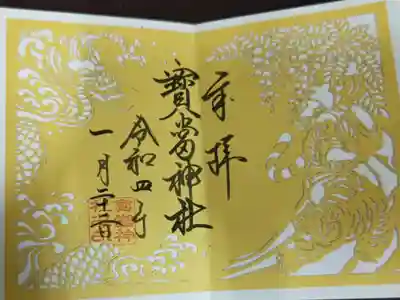 奉拝
寳當神社
令和四年
一月二十二日